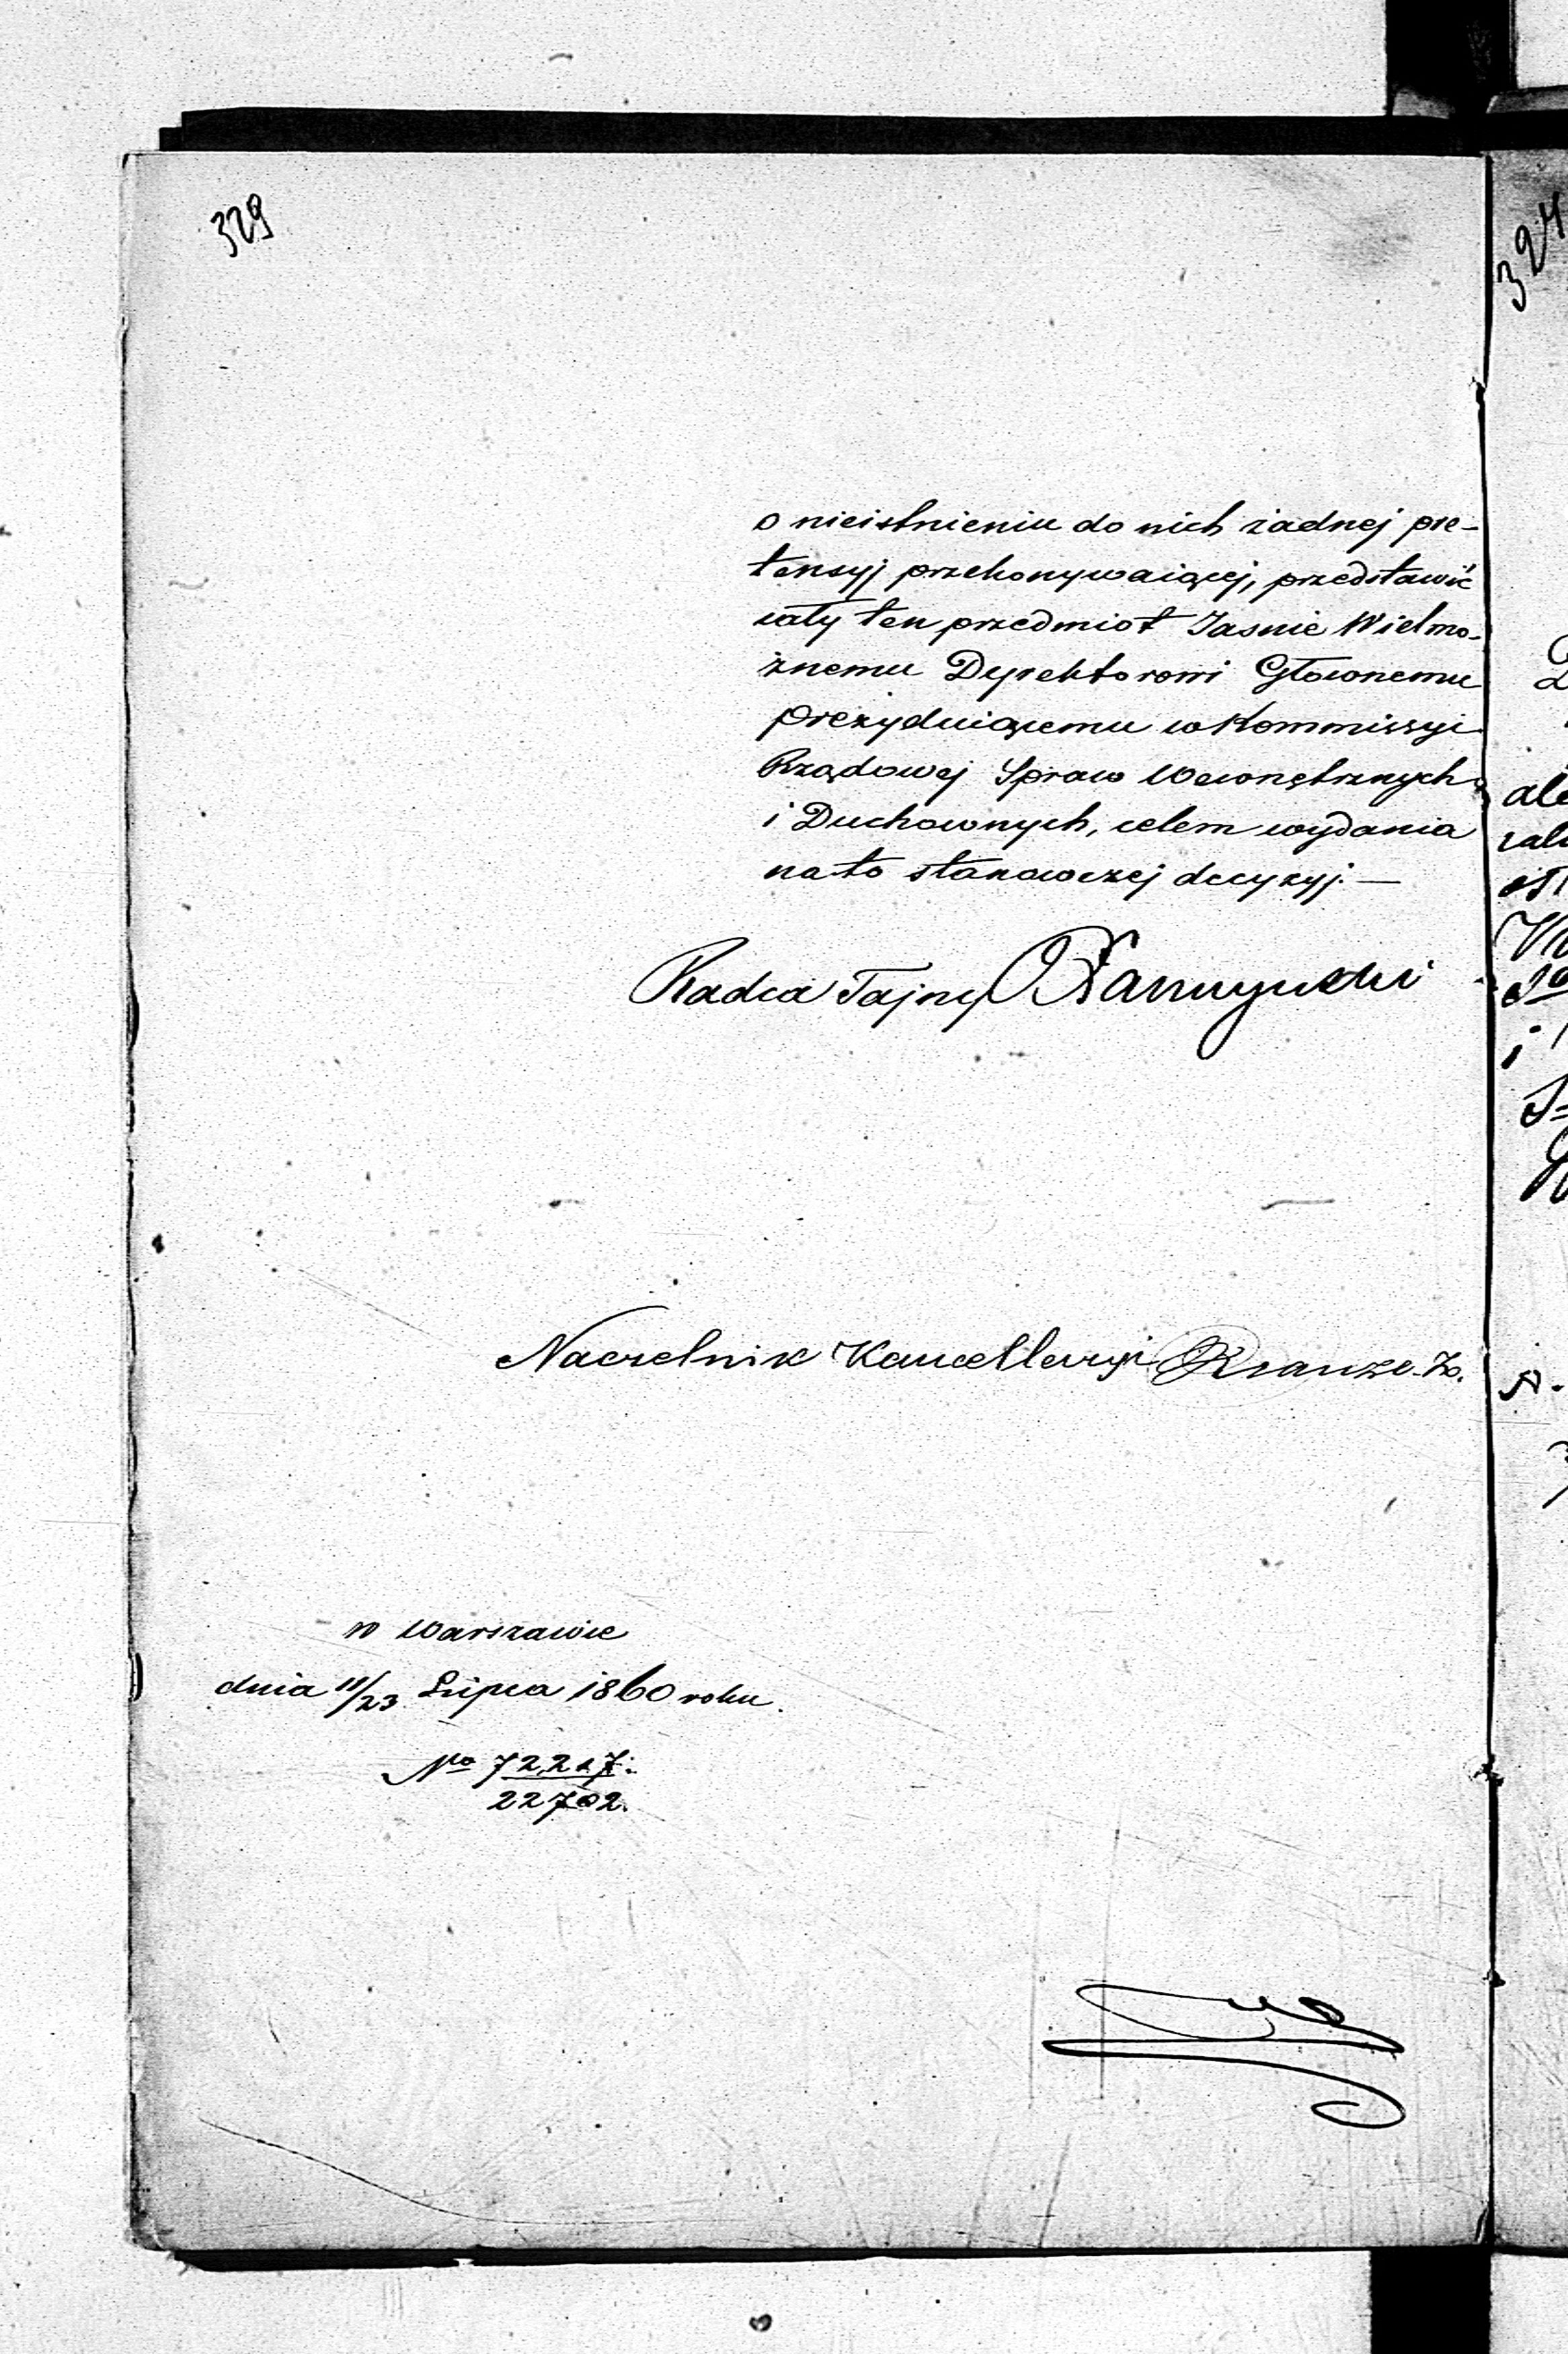 329
o nieistnieniu do nich żadnej pre-
tensyj przekonywaiącej, przedstawić
cały ten przedmiot Jasnie Wielmo-
żnemu Dyrektorowi Głównemu
prezyduiącemu w Kommissyi
Rządowej Spraw Wewnętrznych
i Duchownych, celem wydania
na to stanowczej decyzyj. —
Radca Tajny
Naczelnik Kancellaryi Krauze
w Warszawie
dnia 11/23 Lipca 1860 roku.
No 72,217.
22702.
324